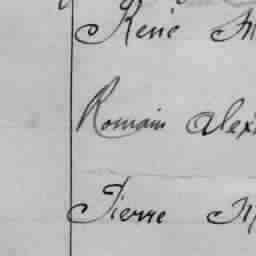 René M
Romain Alex
Pierre M